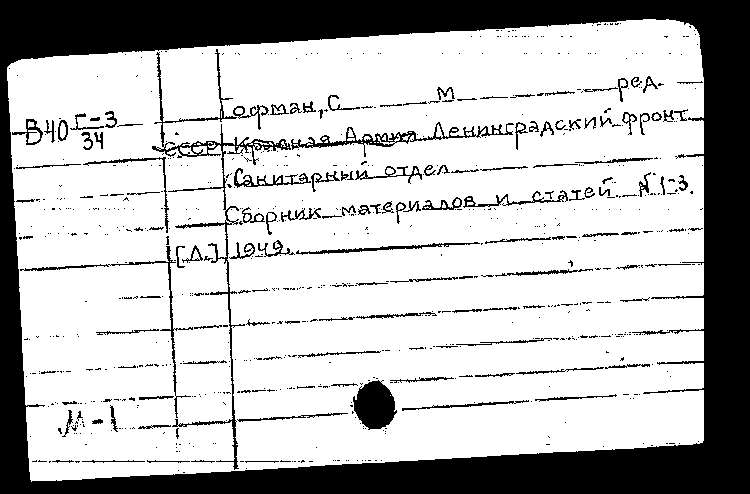 офман, С М ред.
В40 Г-3/34
СССР Красная Армия Ленинградский фронт
Санитарный отдел
Сборник материалов и статей № 1-3.
[Л.], 1949.
М-1